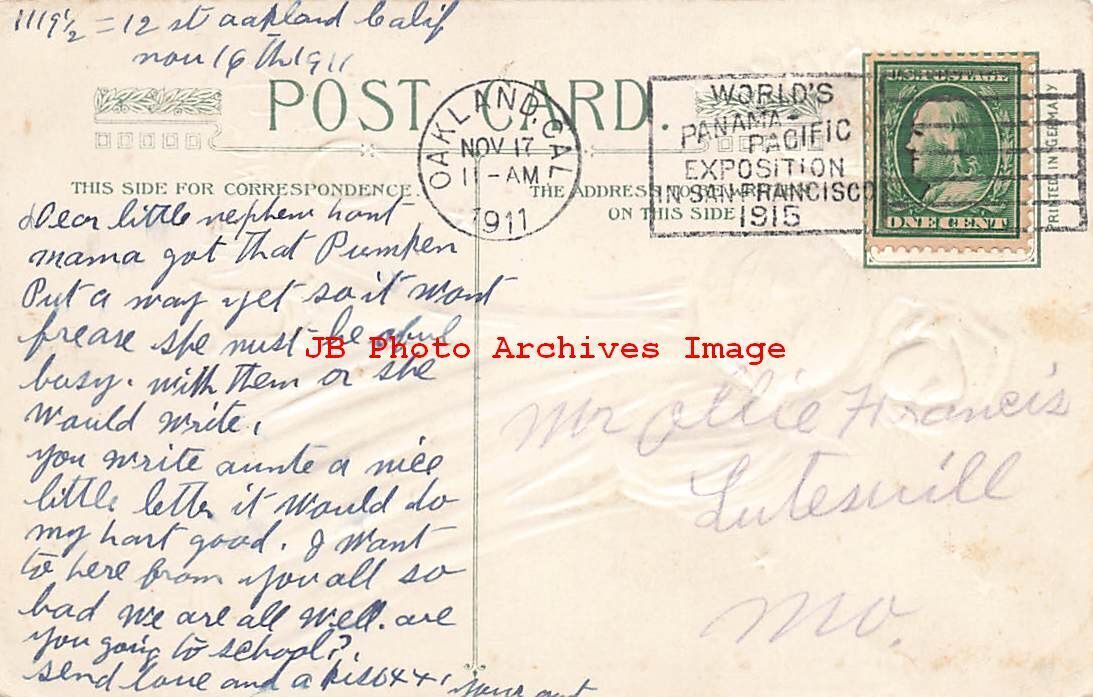 1119½ = 12 st oakland Calif
nov 16 th 1911
POST CARD.
OAKLAND, CAL
NOV 17
11-AM
1911
WORLD'S
PANAMA-
PACIFIC
EXPOSITION
IN SAN FRANCISCO
1915
U.S. POSTAGE
ONE CENT
PRINTED IN GERMANY
THIS SIDE FOR CORRESPONDENCE.
THE ADDRESS TO BE WRITTEN
ON THIS SIDE
Dear little nephew hant
mama got that Pumpken
Put a way yet so it wont
frease she must be oful
busy. with them or she
would write.
you write aunte a nice
little letter it would do
my hart good. I want
to here from you all so
bad we are all well. are
you going to school?
send love and a kiss xxx
your ant
Mr Ollie Francis
Lutesvill
Mo.
JB Photo Archives Image